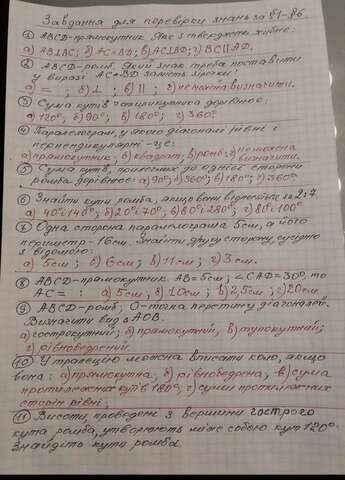 Завдання для перевірки знань за §1-§6.
① ABCD-прямокутник. Яке з тверджень хибне:
а) AB⊥BC; б) AC=BD; в) AC⊥BD; г) BC||AD.
② ABCD-ромб. Який знак треба поставити
у виразі AC*BD замість зірочки:
а) = ; б) ⊥ ; в) || ; г) не можна визначити.
③ Сума кутів чотирикутника дорівнює:
а) 120°; б) 90°; в) 180°; г) 360°.
④ Паралелограм, у якого діагоналі рівні і
перпендикулярні - це:
а) прямокутник; б) квадрат; в) ромб; г) неможна
визначити.
⑤ Сума кутів, прилеглих до однієї сторони
ромба дорівнює: а) 90°; б) 360°; в) 180°; г) 360°.
⑥ Знайти кути ромба, якщо вони відносяться як 2:7.
а) 40° і 140°; б) 20° і 70°; в) 80° і 280°; г) 80° і 100°
⑦ Одна сторона паралелограма 5см, а його
периметр - 16см. Знайти другу сторону, сусідню
з відомою:
а) 5см; б) 6см; в) 11см; г) 3см.
⑧ ABCD-прямокутник. AB=5см; ∠CAD=30°, то
AC= : а) 5см, б) 10см; в) 2,5см; г) 20см.
⑨ ABCD-ромб; О-точка перетину діагоналей.
Визначити вид △AOB.
а) гострокутний; б) прямокутний, в) тупокутний;
г) рівносторонній.
⑩ У трапецію можна вписати коло, якщо
вона: а) прямокутна; б) рівнобедрена, в) сума
протилежних кутів 180°, г) суми протилежних
сторін рівні.
⑪ Висоти, проведені з вершини гострого
кута ромба, утворюють між собою кут 120°.
Знайдіть кути ромба.